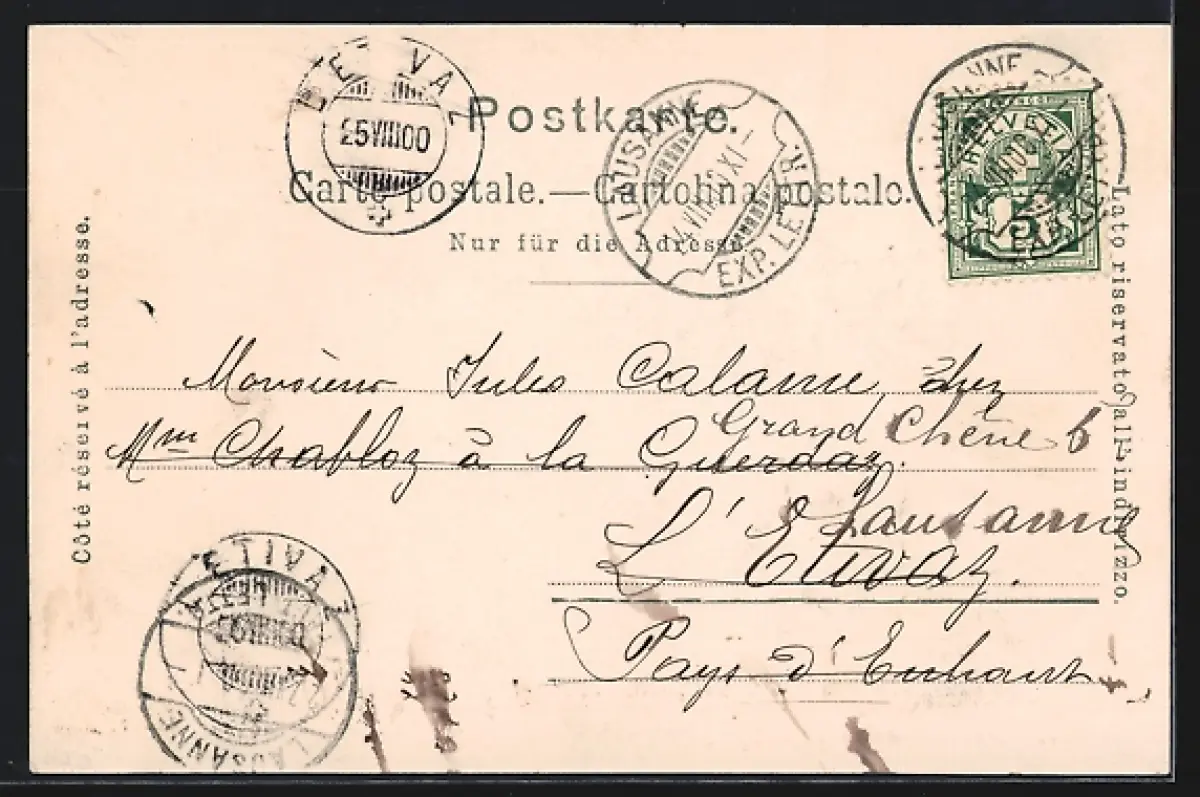 L'ETIVAZ
25 VIII 00
Postkarte.
LAUSANNE
EXP. LETTR.
LAUSANNE
EXP. LETTR.
HELVETIA
5
Carte postale. — Cartolina postale.
Nur für die Adresse.
Côté réservé à l'adresse.
Lato riservato all'indirizzo.
Monsieur Jules Calame chez
Grand Chêne 6
Mme Chabloz à la Guerdaz.
Lausanne
L'Etivaz.
Pays d'Enhaut
ETIVAZ
LAUSANNE